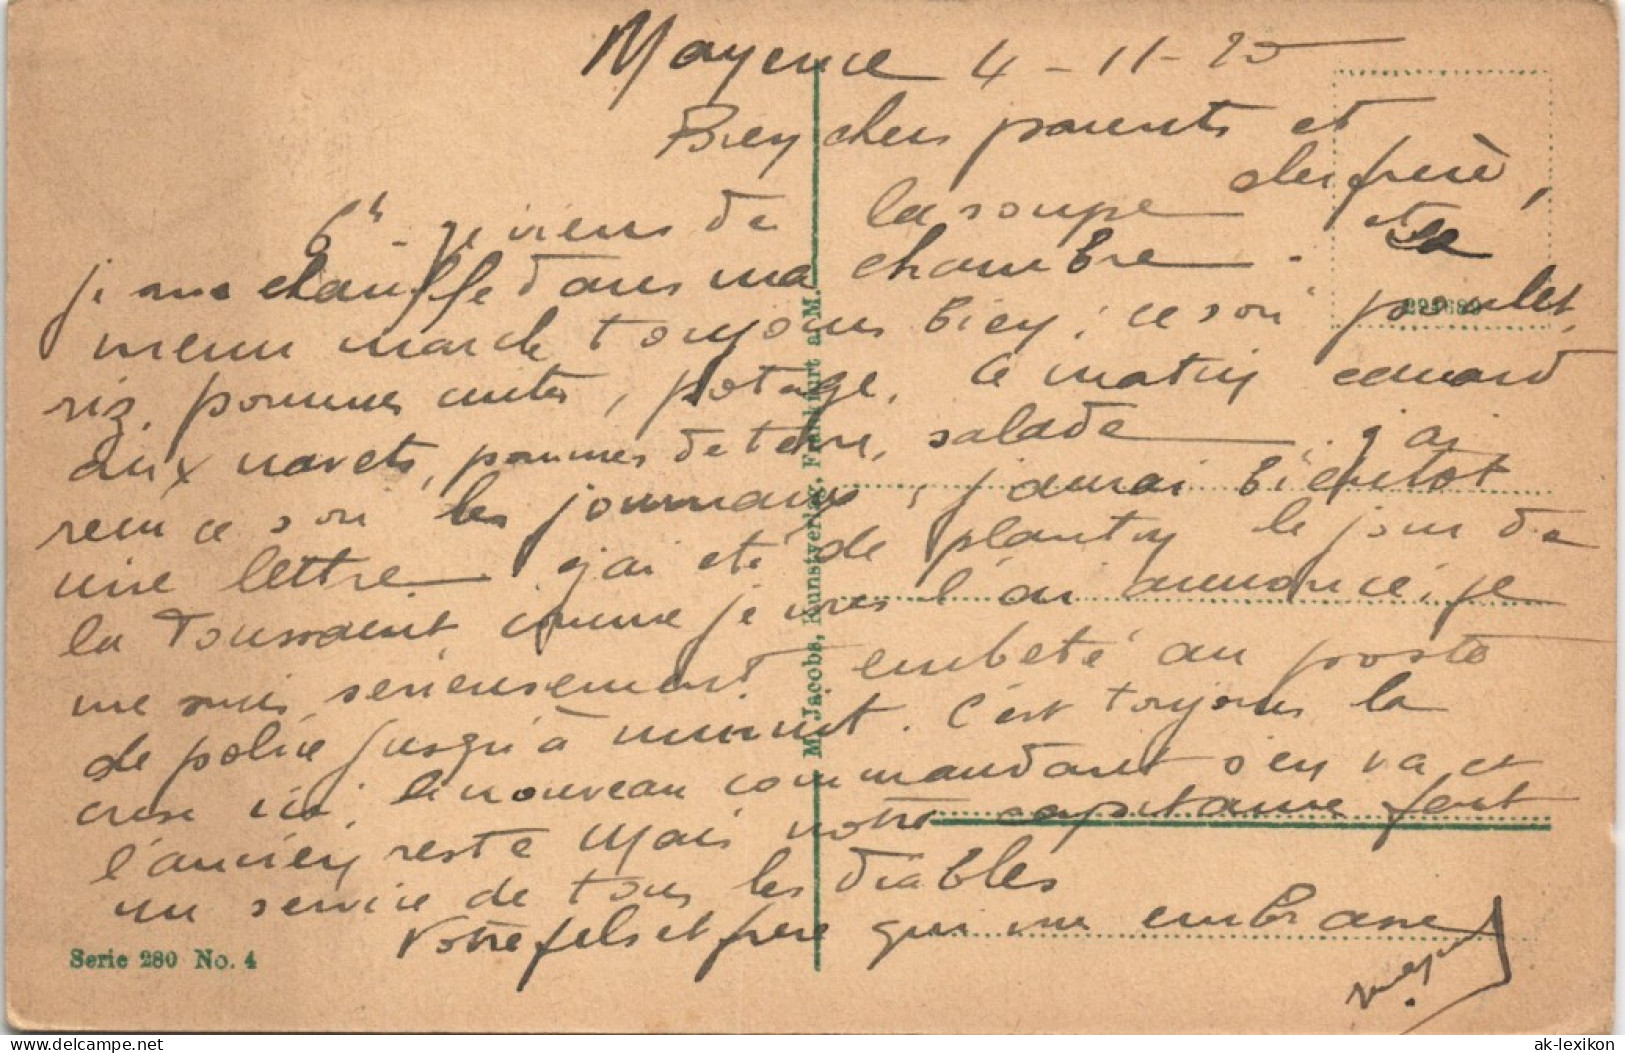 Mayence 4-11-25
Bien chers parents et
cher frère,
6h - je viens de la soupe et
je me chauffe dans ma chambre. Le
menu marche toujours bien; ce soir poulet,
riz, pommes cuites, potage. Ce matin canard
aux navets, pommes de terre, salade. j'ai
reçu ce soir les journaux, j'aurai bientôt
une lettre j'ai été de planton le jour de
la Toussaint comme je vous l'ai annoncé; je
me suis sérieusement embeté au poste
de police jusqu'à minuit. C'est toujours la
crise ici; le nouveau commandant s'en va et
l'ancien reste Mais notre capitaine fait
un service de tous les diables
Votre fils et frère qui vous embrasse
Serie 280 No. 4
M. Jacobs, Kunstverlag, Frankfurt a. M.
delcampe.net
ak-lexikon